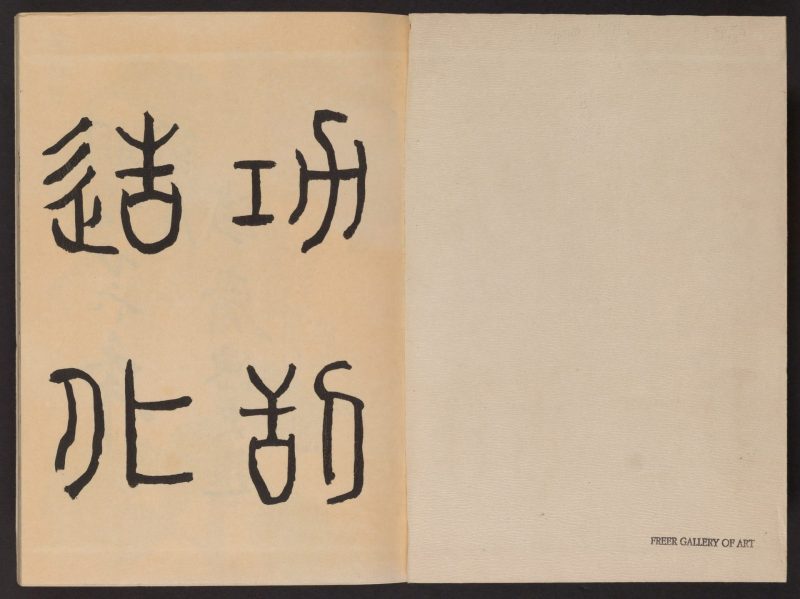 功刮
造化
FREER GALLERY OF ART